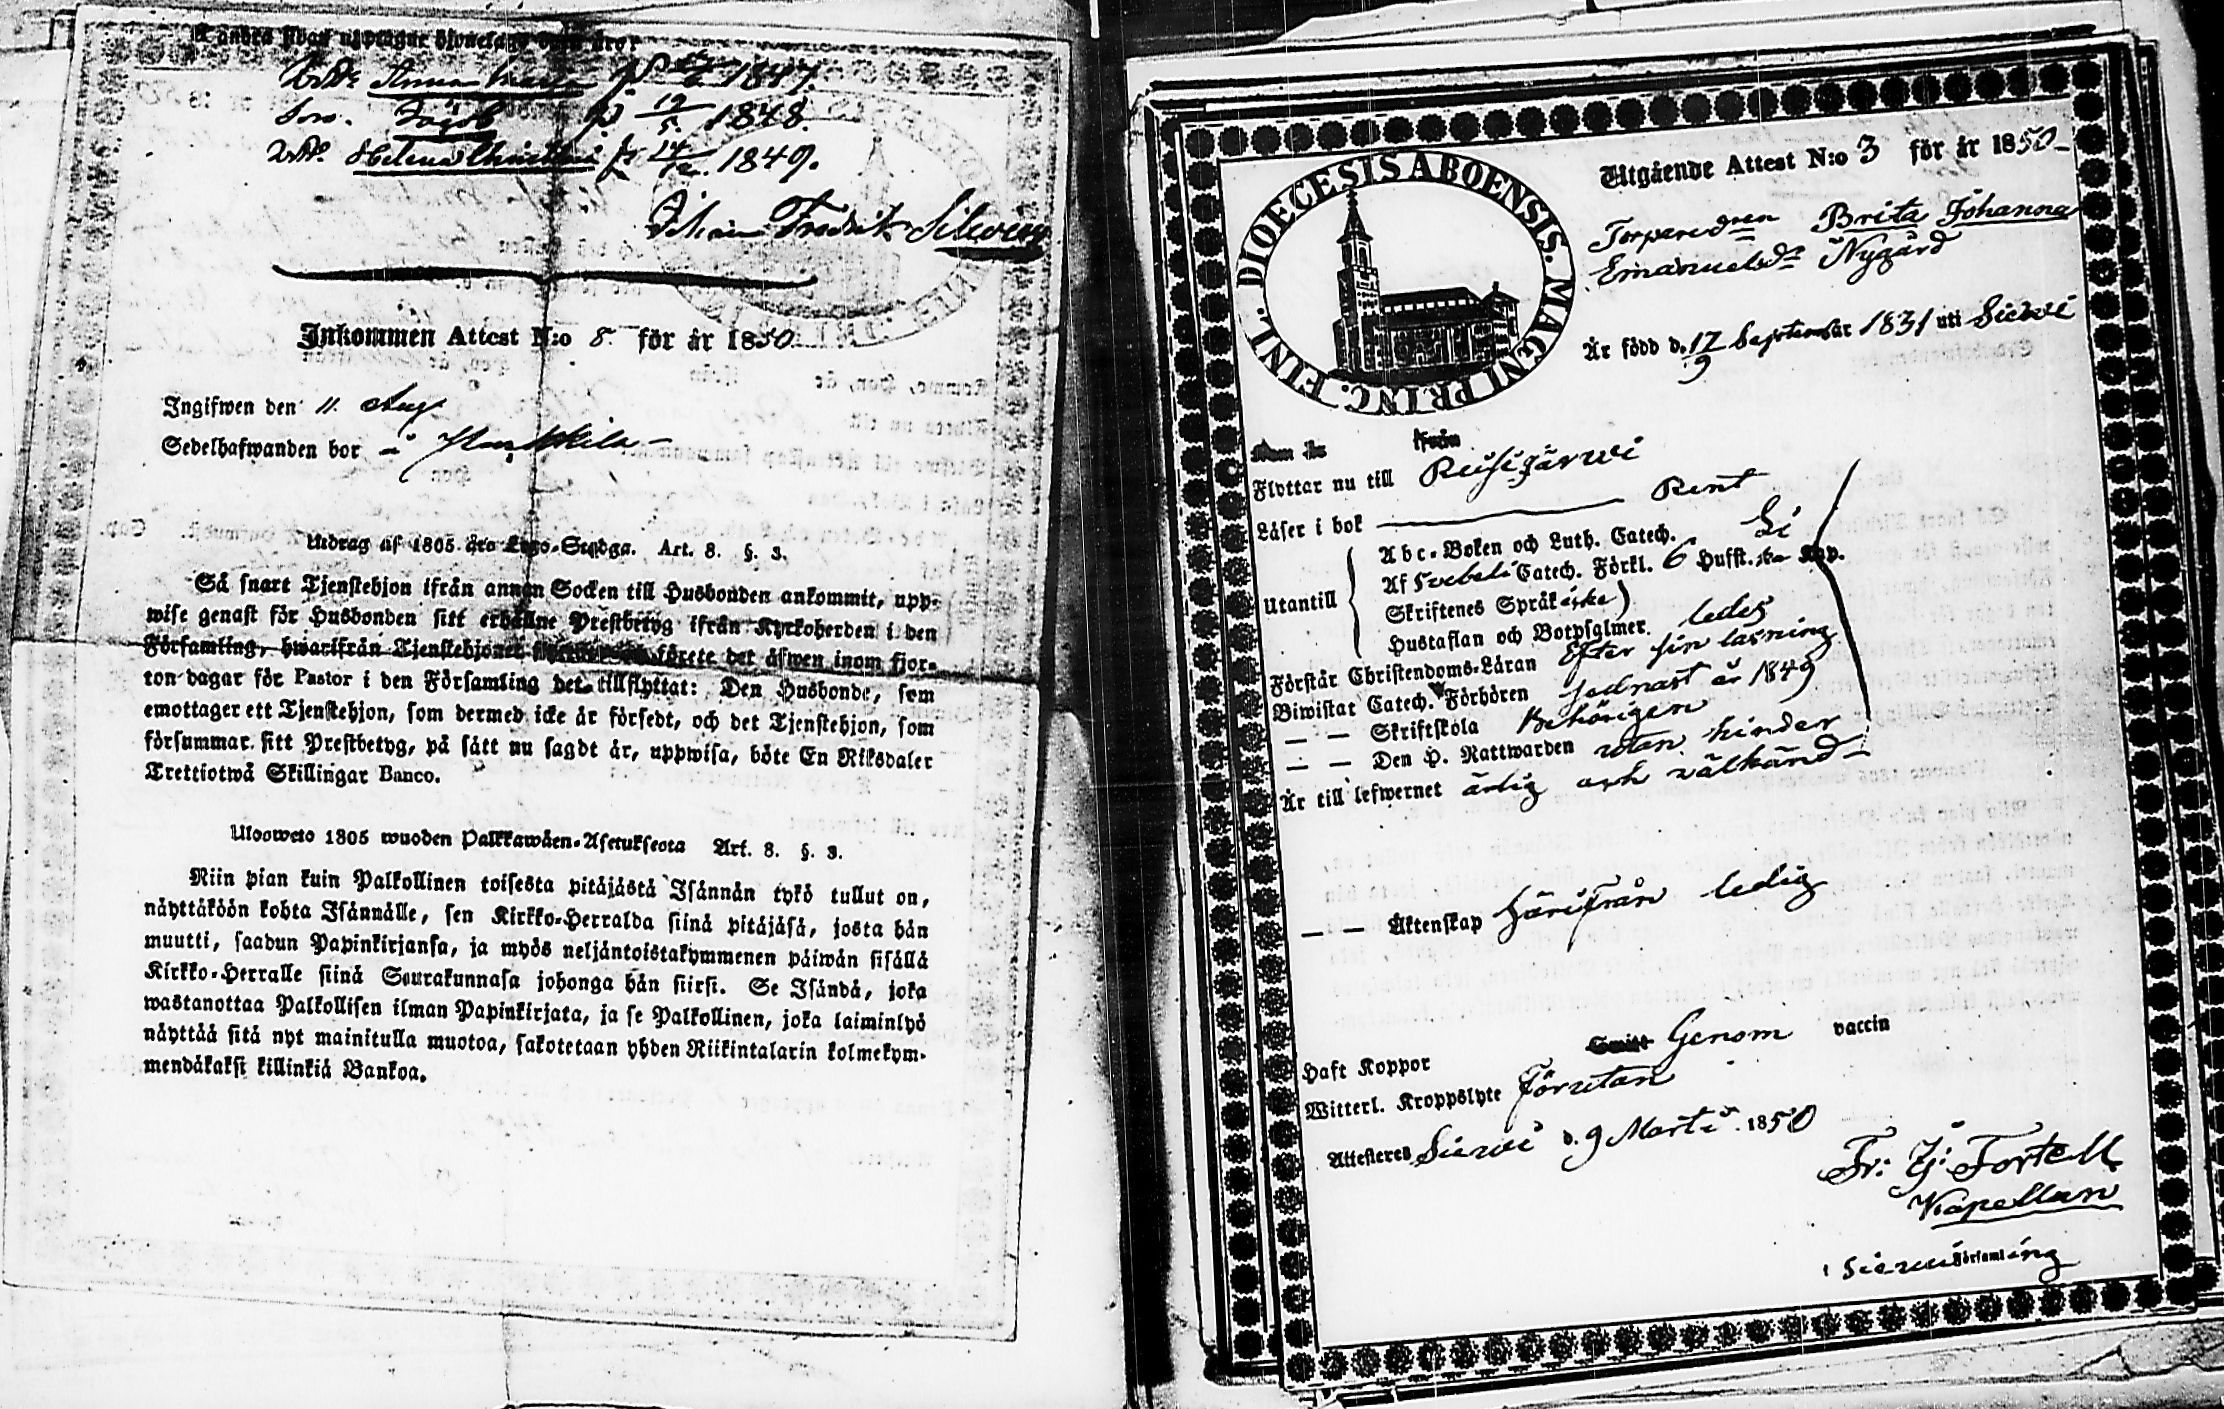 Å andra sidan upptagne Hjonelags barn äro:
Dottr. Anna Maria f. 1847.
Son. Jacob f. 19/5. 1848.
Dottr. Helena Christina f. 14/12. 1849.
Johan Fredrik
Inkommen Attest N:o 8. för år 1850.
Ingifwen den 11. Aug.
Sedelhafwanden bor i
Utdrag af 1805 års Lego-Stadga. Art. 8. §. 3.
Så snart Tjenstehjon ifrån annan Socken till Husbonden ankommit, upp-
wise genast för Husbonden sitt erhållne Prestbetyg ifrån Kyrkoherden i den
Församling, hwarifrån Tjenstehjonet förete det äfwen inom fjor-
ton dagar för Pastor i den Församling det tillflyttat: Den Husbonde, som
emottager ett Tjenstehjon, som dermed icke är försedt, och det Tjenstehjon, som
försummar sitt Prestbetyg, på sätt nu sagdt är, uppwisa, böte En Riksdaler
Trettiotwå Skillingar Banco.
Ulosweto 1805 wuoden Palkkawäen-Asetuksesta Art. 8. §. 3.
Niin pian kuin Palkollinen toisesta pitäjästä Isännän tykö tullut on,
näyttäköön kohta Isännälle, sen Kirkko-Herralda siinä pitäjäsä, josta hän
muutti, saadun Papinkirjansa, ja myös neljäntoistakymmenen päiwän sisällä
Kirkko-Herralle siinä Seurakunnasa johonga hän siirsi. Se Isändä, joka
wastanottaa Palkollisen ilman Papinkirjata, ja se Palkollinen, joka laiminlyö
näyttää sitä nyt mainitulla muotoa, sakotetaan yhden Riikintalarin kolmekym-
mendäkaksi killinkiä Bankoa.
DIOECESIS ABOENSIS. MAGNI PRINC. FINL.
Utgående Attest N:o 3 för år 1850
Torparedren Brita Johanna
Emanuelsdr Nygård
Är född d. 17/9 September 1831 uti Siewi
Kom år från
Flyttar nu till Reisijärwi
Läser i bok Rent
Utantill
Abc-Boken och Luth. Catech.
Af Svebeli Catech. Förkl. 6 Hufst. Kap.
Skriftenes Språk
Hustaflan och Botpsalmer.
Förstår Christendoms-Läran Efter sin läsning
Biwistat Catech. Förhören sednast år 1849
— — Skriftskola Behörigen
— — Den H. Nattwarden utan hinder
Är till lefwernet ärlig och välkänd
— — Äktenskap härifrån ledig
Haft Koppor Smitt Genom vaccin
Witterl. Kroppslyte Förutan
Attesteras Siewi d. 9 Martii 1850
Fr: J: Fortell
Kapellan
i Siewi Församling